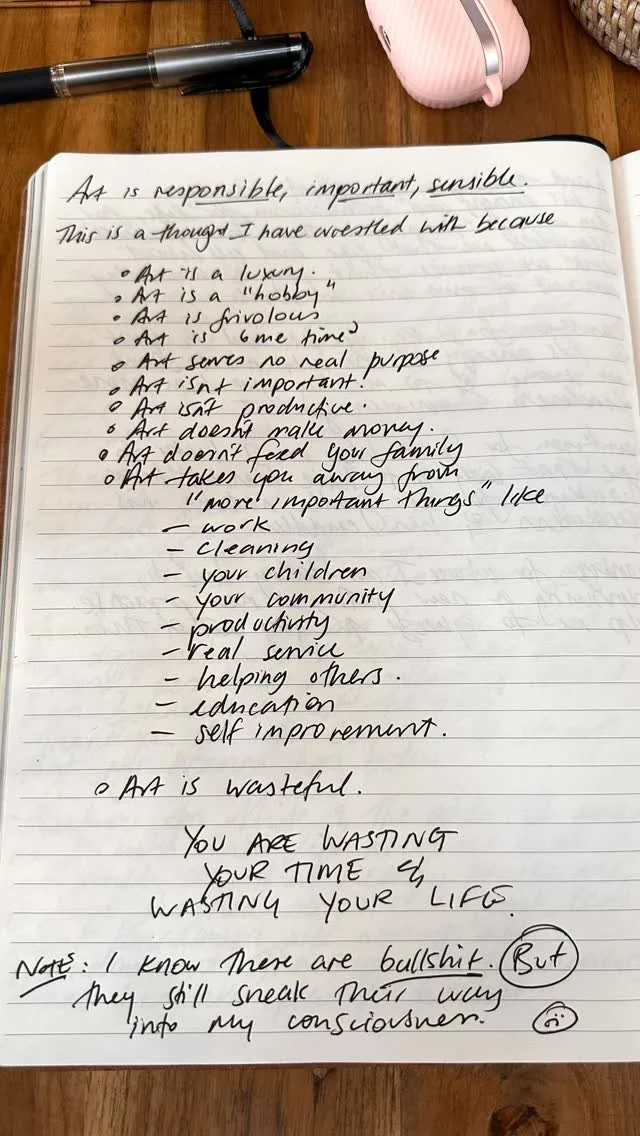 Art is responsible, important, sensible.
This is a thought I have wrestled with because
• Art is a luxury.
• Art is a "hobby"
• Art is frivolous
• Art is "me time"
• Art serves no real purpose
• Art isn't important!
• Art isn't productive.
• Art doesn't make money.
• Art doesn't feed your family
• Art takes you away from
"more important things" like
– work
– cleaning
– your children
– your community
– productivity
– real service
– helping others.
– education
– self improvement.
• Art is wasteful.
YOU ARE WASTING
YOUR TIME &
WASTING YOUR LIFE.
Note: I know there are bullshit. But
they still sneak their way
into my consciousness.